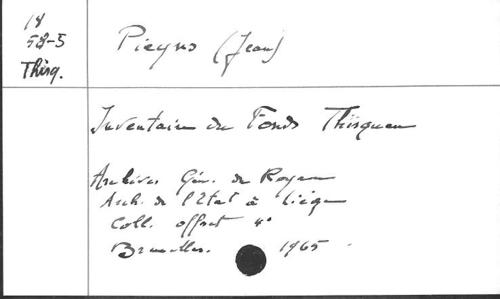 18
58-5
Thisq.
Pieyns (Jean)
Inventaire du Fonds Thisquen
Archives Gén. du Royaume
Arch. de l'Etat à Liège
Coll. offset 4°
Bruxelles. 1965